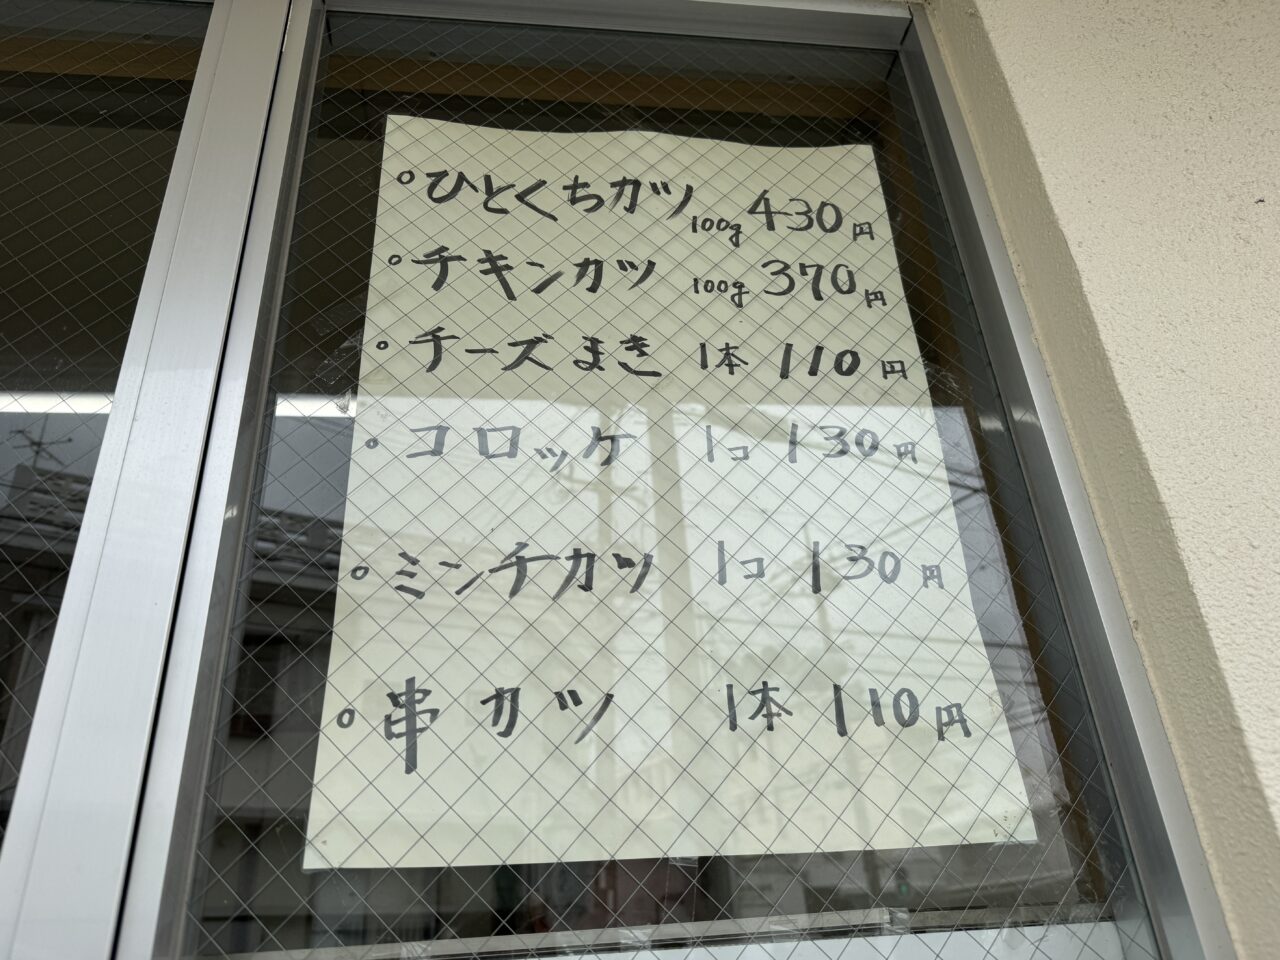 ○ひとくちカツ 100g 430円
○チキンカツ 100g 370円
○チーズまき 1本 110円
○コロッケ 1コ 130円
○ミンチカツ 1コ 130円
○串カツ 1本 110円